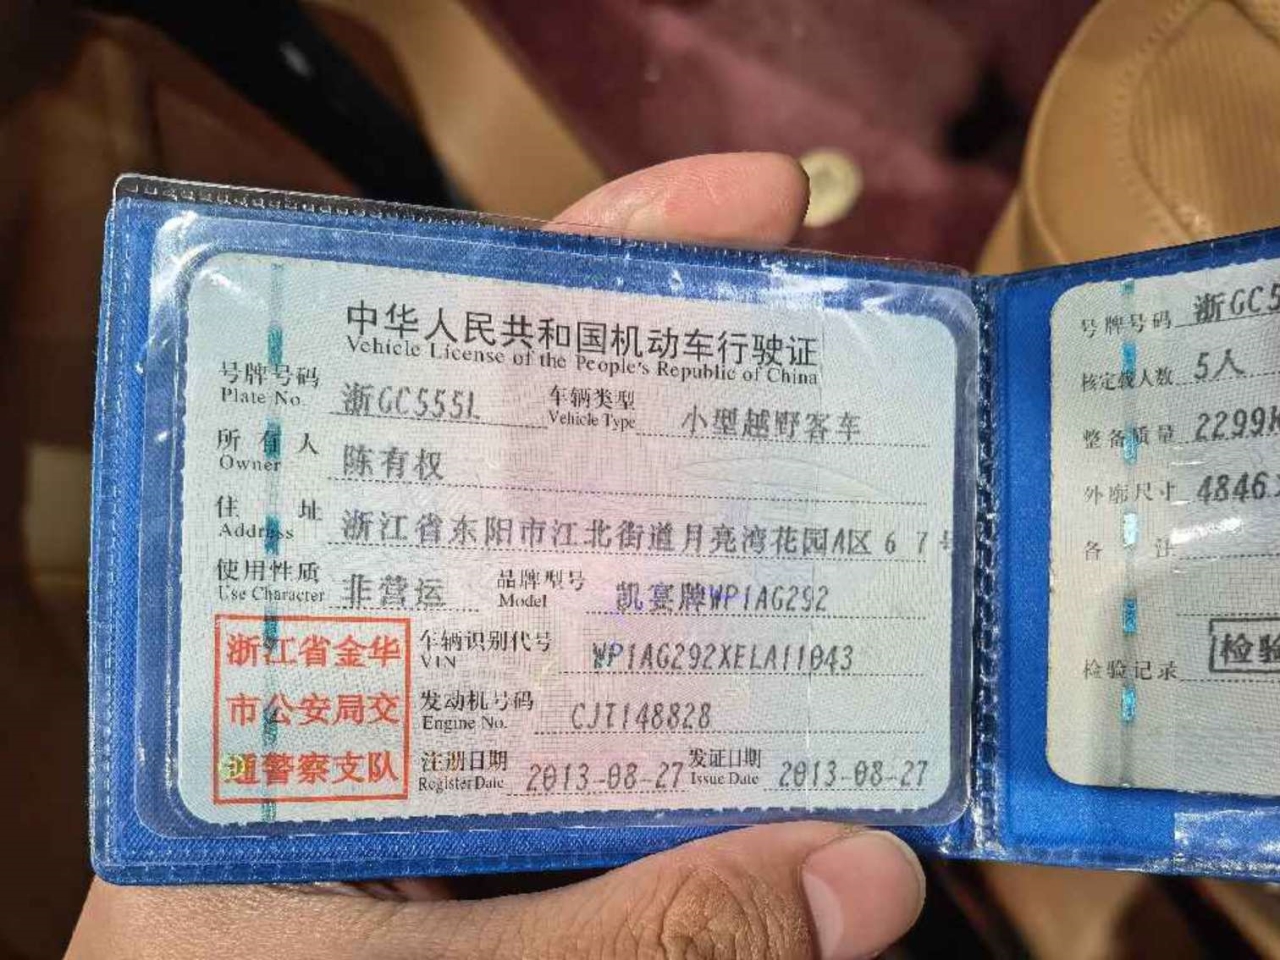 中华人民共和国机动车行驶证
Vehicle License of the People's Republic of China
号牌号码 浙GC555L 车辆类型 小型越野客车
Plate No. Vehicle Type
所有人 陈有权
Owner
住址 浙江省东阳市江北街道月亮湾花园A区67号
Address
使用性质 非营运 品牌型号 凯宴牌WP1AG292
Use Character Model
浙江省金华
市公安局交
通警察支队
车辆识别代号 WP1AG292XELA11043
VIN
发动机号码 CJT148828
Engine No.
注册日期 2013-08-27 发证日期 2013-08-27
Register Date Issue Date
号牌号码 浙GC5
核定载人数 5人
整备质量 2299k
外廓尺寸 4846
备注
检验记录 检验